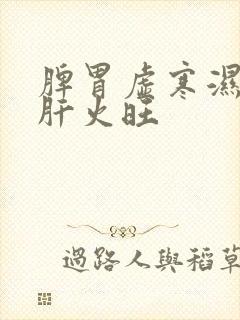 脾胃虛寒濕
肝火旺
過路人與稻草